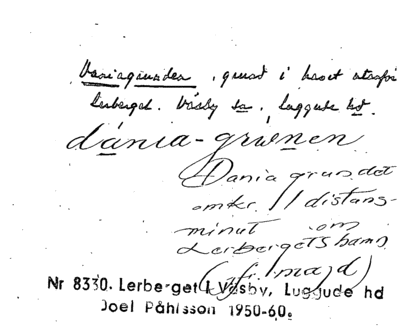 Daniagrunden, grund i havet utanför
Lerberget. Väsby sn, Luggude hd.
dánia-grɯnen
Dania grundet
omkr. 1 distans-
minut om
Lerbergets hamn
Nr 8330. Lerberget i Väsby, Luggude hd
Joel Påhlsson 1950-60.